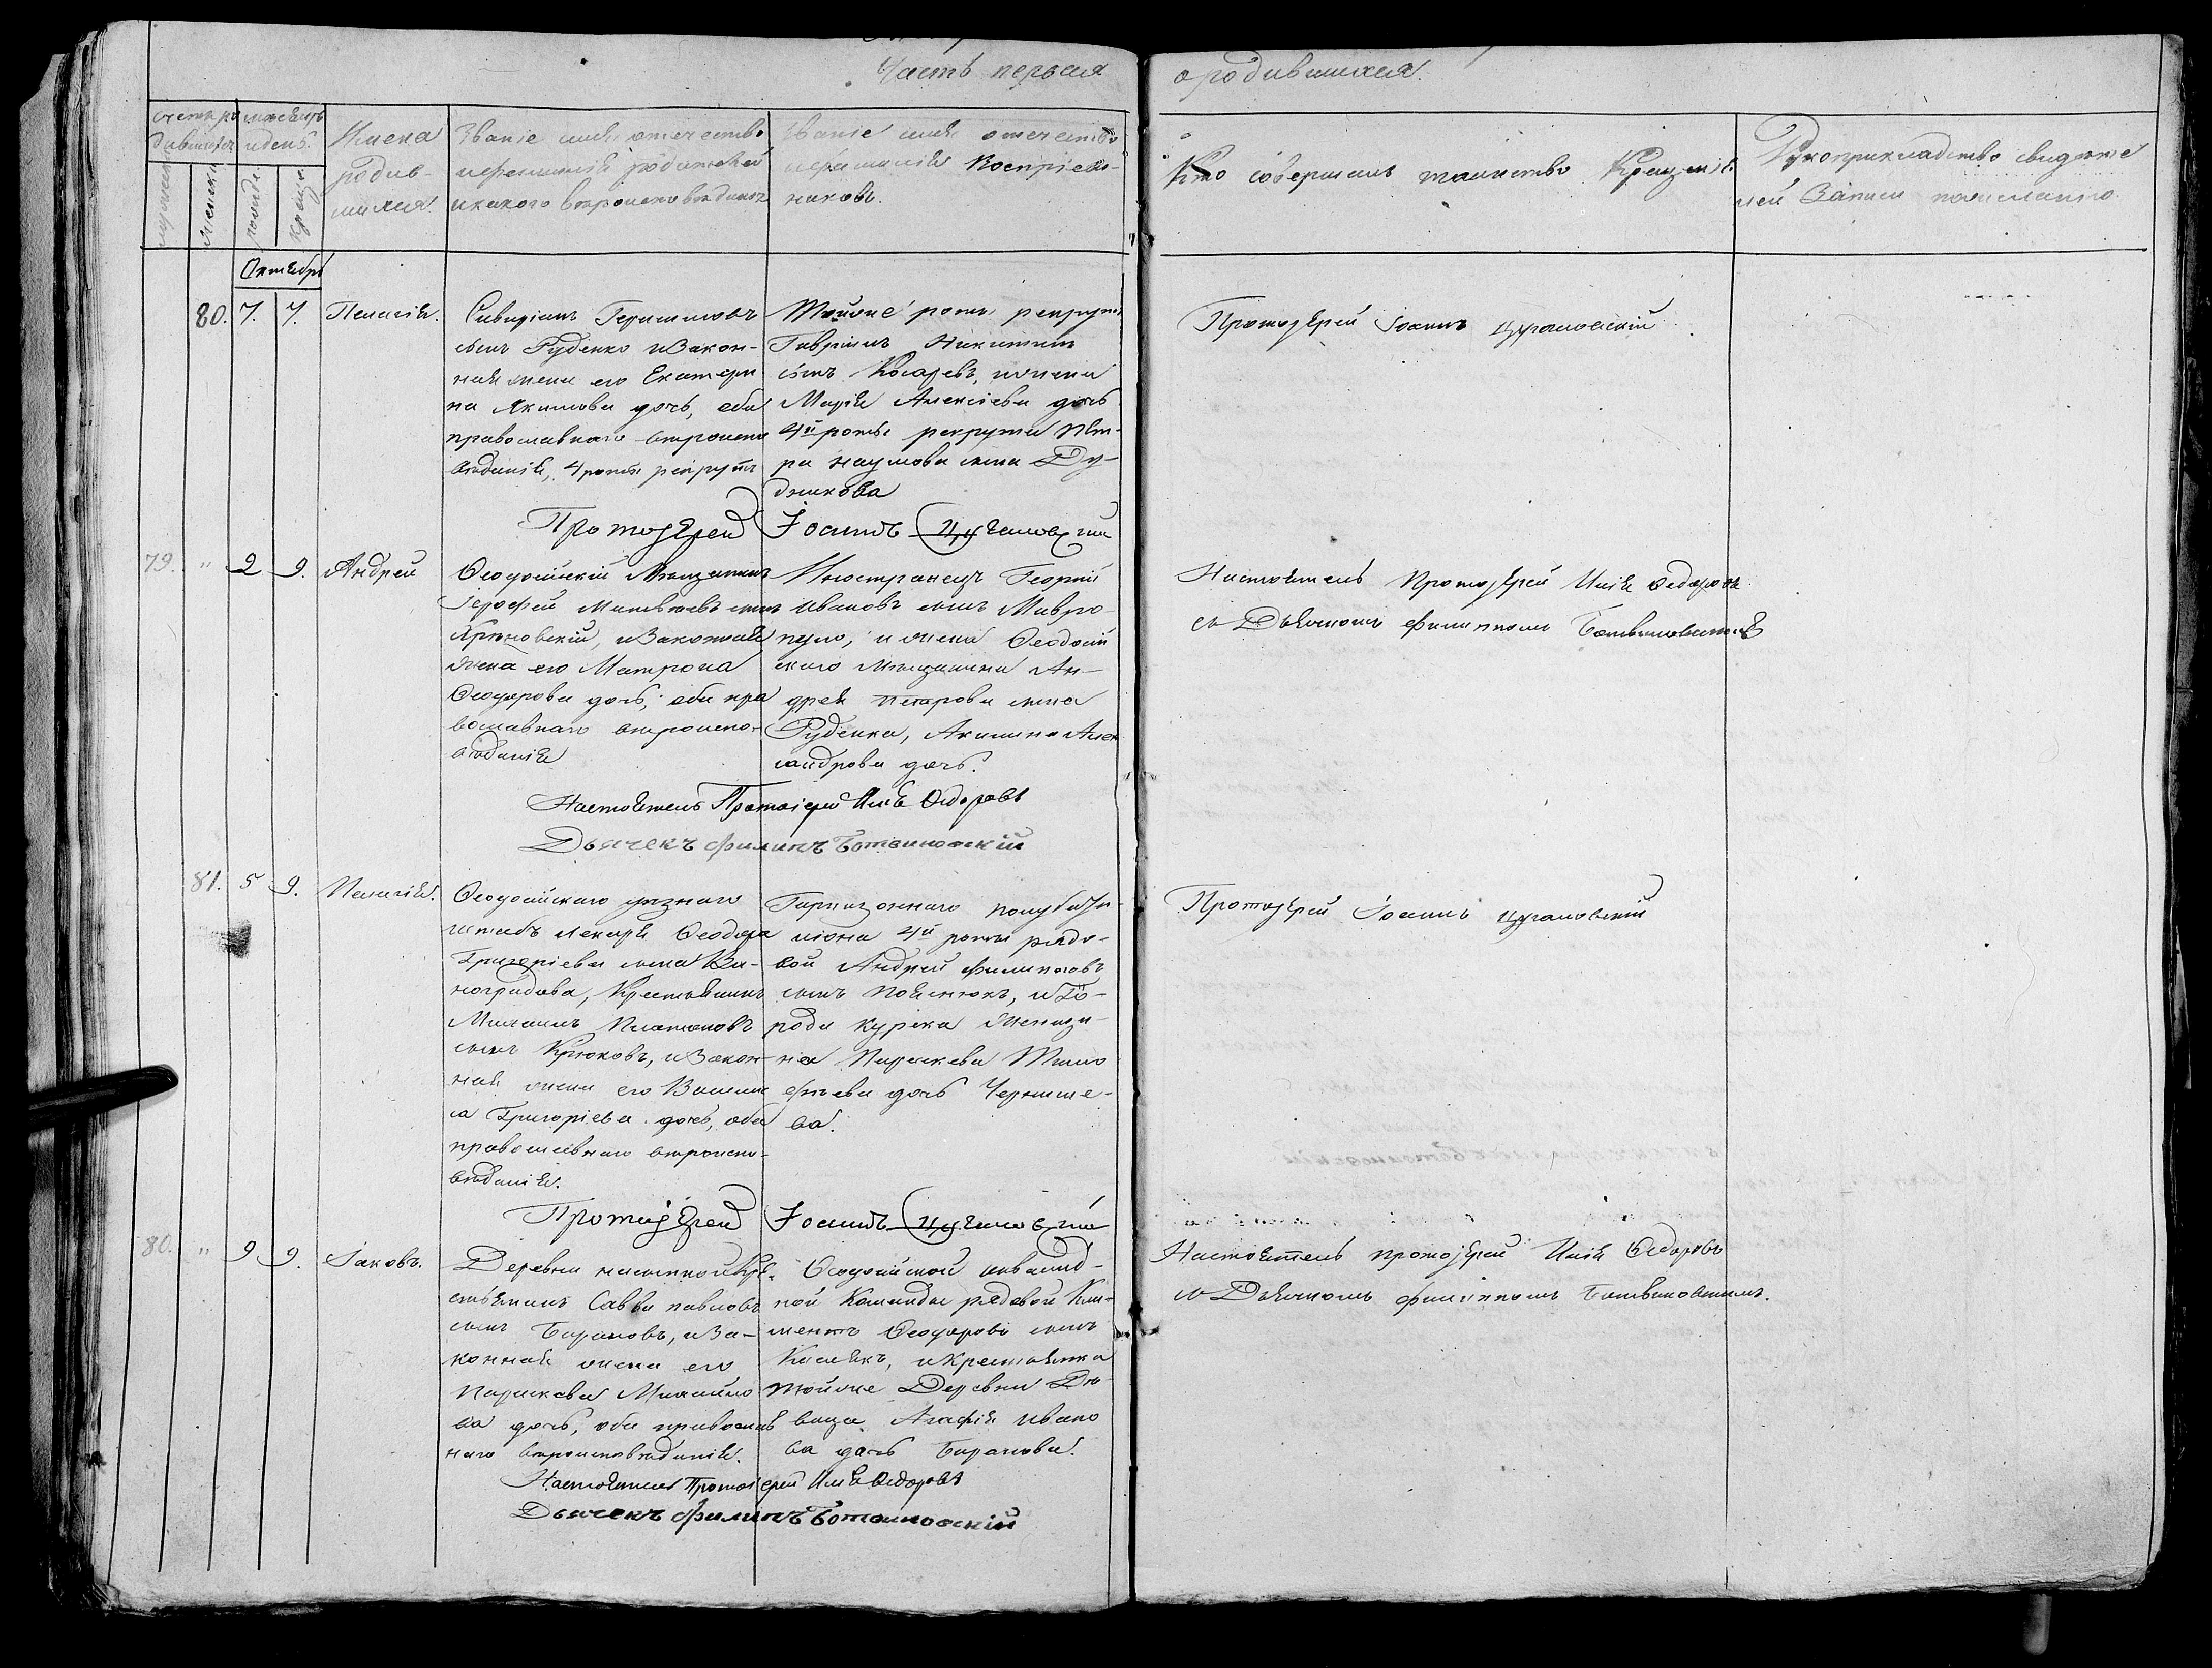 Часть первая
о родившихся.
счетъ ро
дившихся
мѣсяцъ
и день.
Имена
родив-
шихся.
Званіе имя отечество
и фамилія родителей
и какого вѣроисповѣданія
Званіе имя отечество
и фамилія Воспріем-
никовъ.
Кто совершалъ таинство Крещенія.
Рукоприкладство свидѣте
лей Записи по желанію.
женска
рожде.
креще.
Октября
80. 7. 7. Пелагія.
Герасимовъ
сынъ Руденко и Закон-
ная жена его Екатери
на Якимова дочь, оба
православнаго вѣроиспо
вѣданія, 4 роты рекрутъ
Тойже роты рекрутъ
Гавріилъ Никитинъ
сынъ Косаревъ, и жена
Марія Алексіева дочь
4й роты рекрута Пет-
ра Наумова сына Ду-
дникова
Протоіерей Іоаннъ
Протоіерей Іоаннъ
79. " 2 9. Андрей
Ѳеодосійскій Мѣщанинъ
Ерофей Матвѣевъ сынъ
и Законная
жена его Матрона
Ѳеодорова дочь, оба пра
вославнаго вѣроиспо-
вѣданія
Иностранецъ Георгій
Ивановъ сынъ Мавро
пуло, и жена Ѳеодосій
скаго Мѣщанина Ан-
дрея Петрова сына
Руденка, Акилина Алек
сандрова дочь.
Настоятель Протоіерей Илія Ѳедоровъ
Дьячекъ Филипъ Ботвиновскій
Настоятель Протоіерей Илія Ѳедоровъ
съ Дьячкомъ Филиппомъ Ботвиновскимъ
81. 5 9. Пелагія.
Ѳеодосійскаго уѣзнаго
штабъ лекаря Ѳеодора
Григоріева сына Ви-
ноградова, Крестьянинъ
Михаилъ Платоновъ
сынъ Крюковъ, и Закон-
ная жена его Васили
са Григоріева дочь, оба
православнаго вѣроиспо-
вѣданія.
Гарнизоннаго полубата-
ліона 4й роты рядо-
вой Андрей Филиповъ
сынъ и Го-
рода Курска Женщи-
на Параскева Тимо
фѣева дочь Черныше-
ва.
Протоіерей Іоаннъ
Протоіерей Іоаннъ
80. " 9 9. Іаковъ.
Деревни Насыпкой Кре-
стьянинъ Савва Павловъ
сынъ Барановъ, и За-
конная жена его
Параскева Михайло
ва дочь, оба православ
наго вѣроисповѣданія.
Ѳеодосійской инвалид-
ной Команды рядовой Кли-
ментъ Ѳеодоровъ сынъ
и Крестьянка
тойже Деревни Вдо-
вица Агафія Ивано
ва дочь Баранова.
Настоятель Протоіерей Илія Ѳедоровъ
Дьячекъ Филипъ Ботвиновскій
Настоятель протоіерей Илія Ѳедоровъ
съ Дьячкомъ Филиппомъ Ботвиновскимъ.